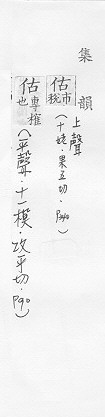 集韻
上聲
估市稅(十姥·果五切·P340)
估專榷也(平聲·十一模·攻乎切·P90)